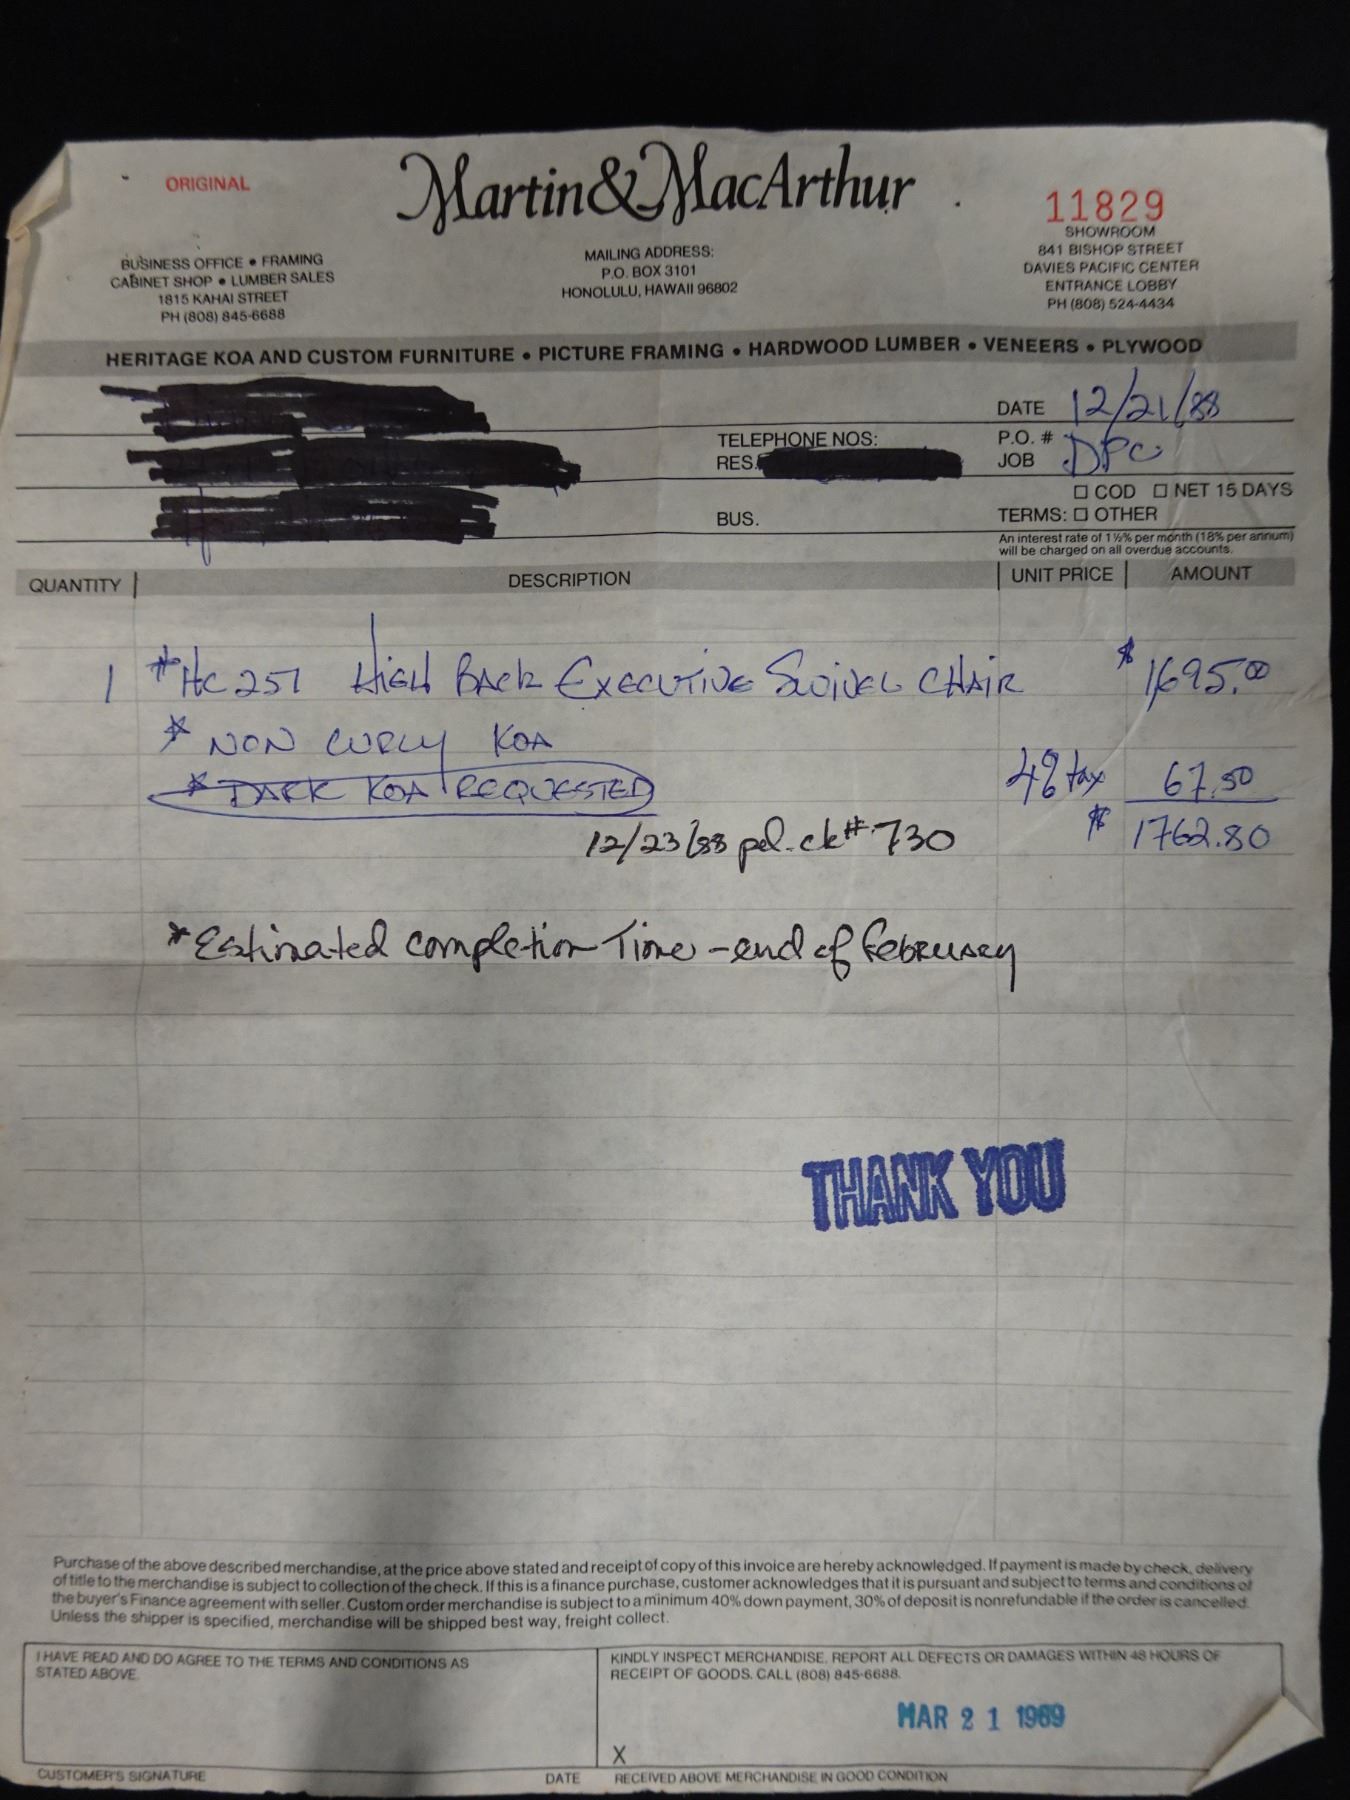 ORIGINAL
Martin & MacArthur
11829
BUSINESS OFFICE • FRAMING
CABINET SHOP • LUMBER SALES
1815 KAHAI STREET
PH (808) 845-6688
MAILING ADDRESS:
P.O. BOX 3101
HONOLULU, HAWAII 96802
SHOWROOM
841 BISHOP STREET
DAVIES PACIFIC CENTER
ENTRANCE LOBBY
PH (808) 524-4434
HERITAGE KOA AND CUSTOM FURNITURE • PICTURE FRAMING • HARDWOOD LUMBER • VENEERS • PLYWOOD
DATE 12/21/88
TELEPHONE NOS:
RES.
P.O. #
JOB DPC
☐ COD ☐ NET 15 DAYS
BUS.
TERMS: ☐ OTHER
An interest rate of 1½% per month (18% per annum)
will be charged on all overdue accounts.
QUANTITY DESCRIPTION UNIT PRICE AMOUNT
1 #HC 251 HIGH BACK EXECUTIVE SWIVEL CHAIR $1,695.00
* NON CURLY KOA
* DARK KOA REQUESTED 4% tax 67.80
$1762.80
12/23/88 pd. ck# 730
*Estimated completion Time - end of February
THANK YOU
Purchase of the above described merchandise, at the price above stated and receipt of copy of this invoice are hereby acknowledged. If payment is made by check, delivery
of title to the merchandise is subject to collection of the check. If this is a finance purchase, customer acknowledges that it is pursuant and subject to terms and conditions of
the buyer's Finance agreement with seller. Custom order merchandise is subject to a minimum 40% down payment, 30% of deposit is nonrefundable if the order is cancelled.
Unless the shipper is specified, merchandise will be shipped best way, freight collect.
I HAVE READ AND DO AGREE TO THE TERMS AND CONDITIONS AS
STATED ABOVE.
KINDLY INSPECT MERCHANDISE. REPORT ALL DEFECTS OR DAMAGES WITHIN 48 HOURS OF
RECEIPT OF GOODS. CALL (808) 845-6688.
MAR 21 1989
X
CUSTOMER'S SIGNATURE DATE RECEIVED ABOVE MERCHANDISE IN GOOD CONDITION